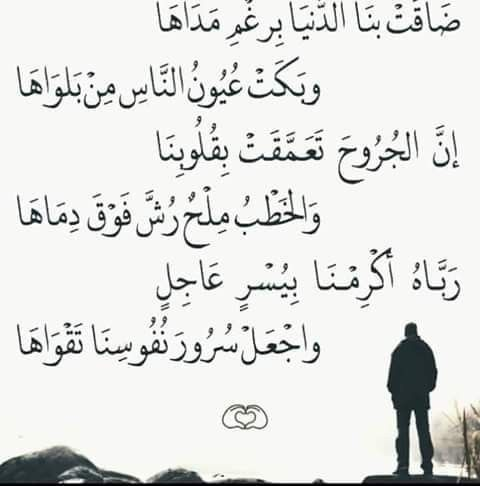 ضَاقَتْ بِنَا الدُّنْيَا بِرغْمِ مَدَاهَا
وبَكَتْ عُيُونُ النَّاسِ مِنْ بَلوَاهَا
إنَّ الجُرُوحَ تَعَمَّقَتْ بِقُلُوبِنَا
وَالخَطْبُ مِلْحٌ رُشَّ فَوْقَ دِمَاهَا
رَبَّاهُ أَكْرِمْنَا بِيُسْرٍ عَاجِلٍ
واجْعَلْ سُرُورَ نُفُوسِنَا تَقْوَاهَا